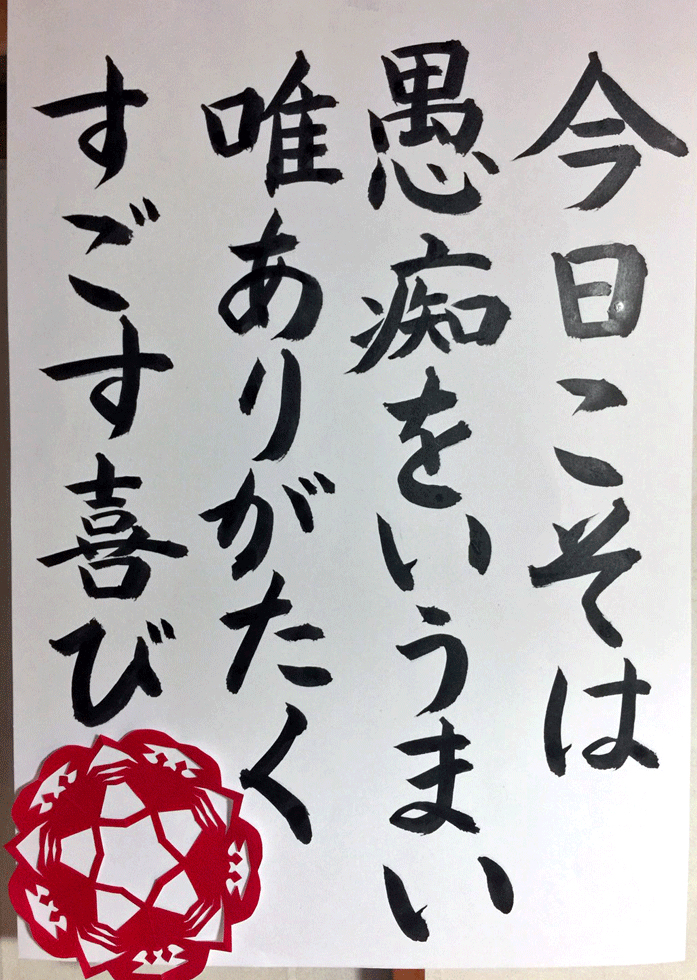 今日こそは
愚痴をいうまい
唯ありがたく
すごす喜び